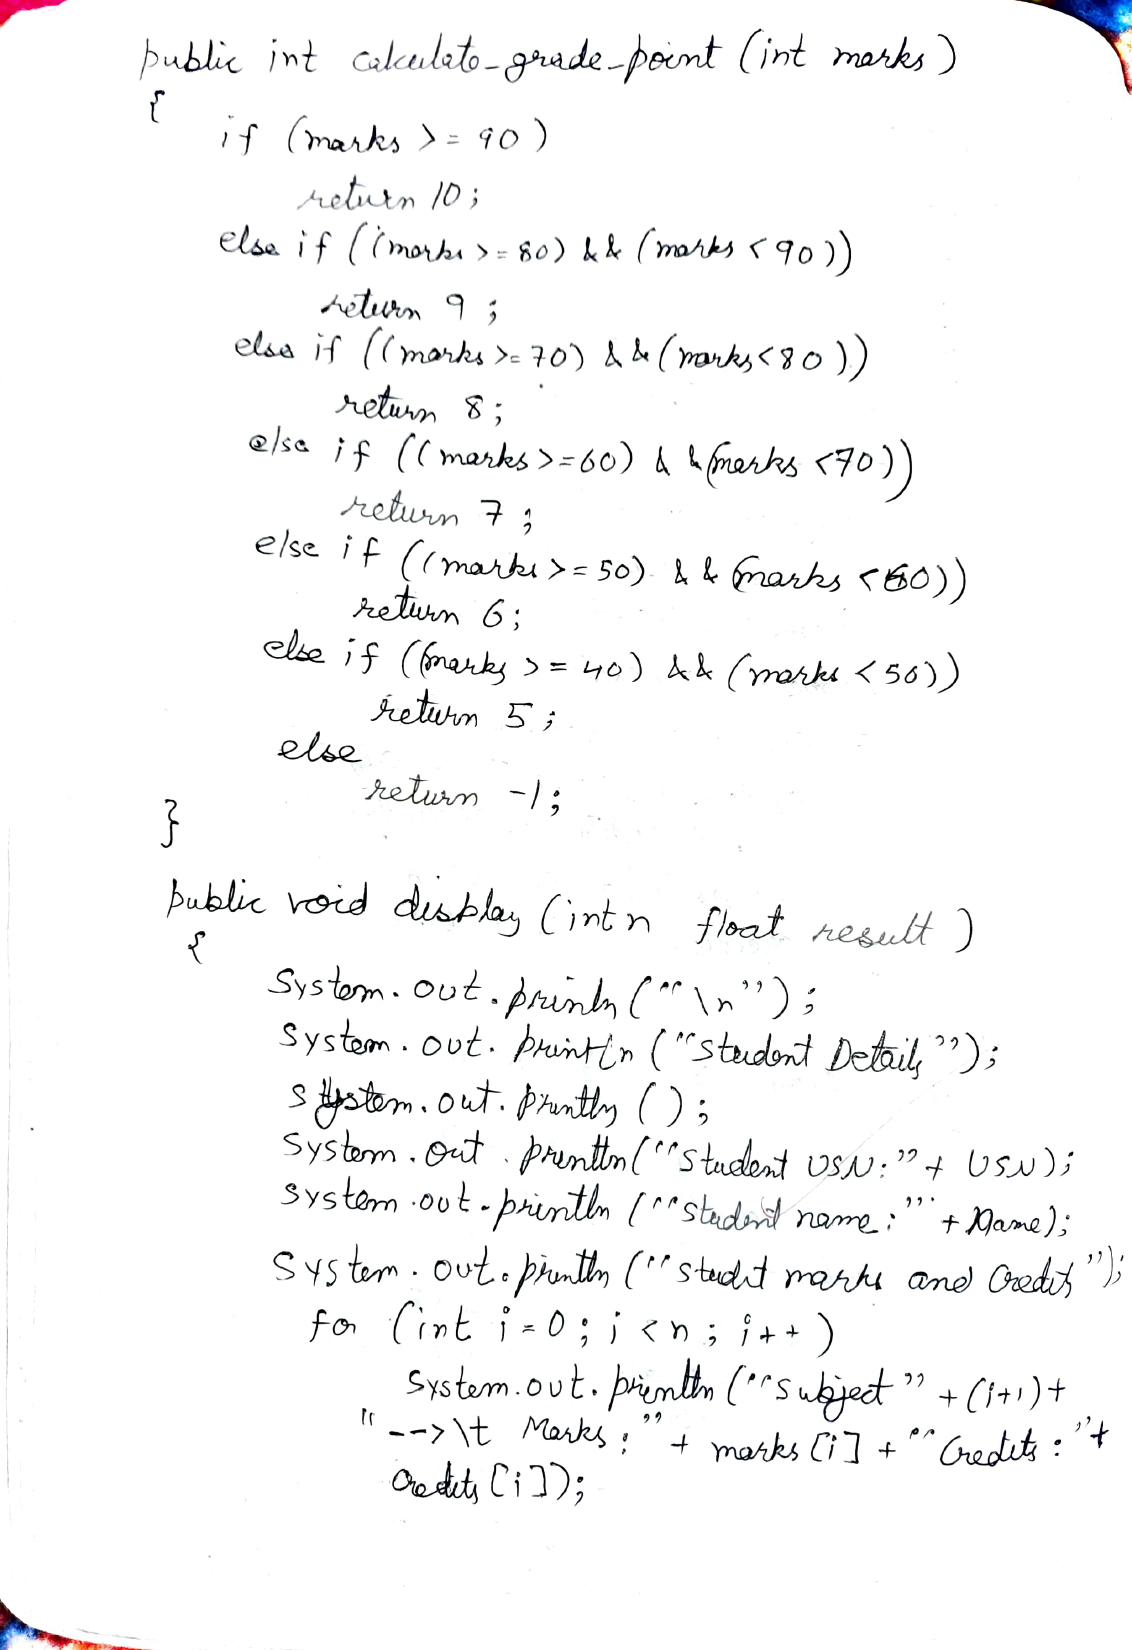 public int calculate_grade_point (int marks)
{
if (marks >= 90)
return 10;
else if ((marks >= 80) && (marks < 90))
return 9;
else if ((marks >= 70) && (marks < 80))
return 8;
else if ((marks >= 60) && (marks < 70))
return 7;
else if ((marks >= 50) && (marks < 60))
return 6;
else if ((marks >= 40) && (marks < 50))
return 5;
else
return -1;
}
public void display (int n float result)
{
System.out.prinln ("\n");
System.out.println ("Student Details");
System.out.println ();
System.out.println ("Student USN:" + USN);
System.out.println ("Student name:" + Name);
System.out.println ("Studet marks and Credits");
for (int i=0; i<n; i++)
System.out.println ("Subject" + (i+1)+
"-->\t Marks:" + marks[i] + "Credits:"+
Credits[i]);